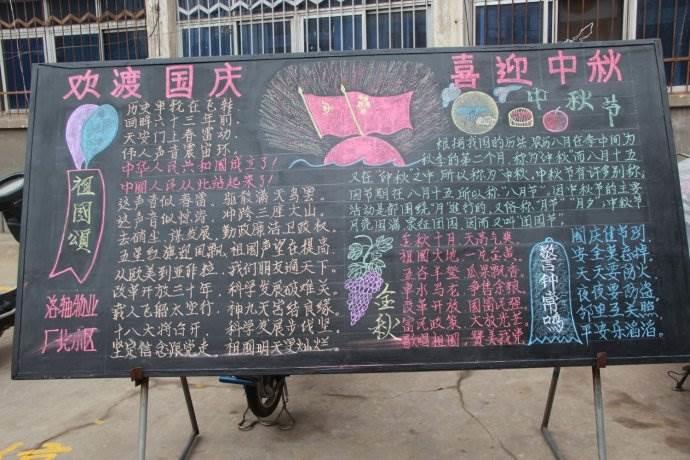 欢渡国庆
喜迎中秋
祖國頌
历史車轮在飞转
回眸六十三年前
天安门上春雷动
伟人声音震宙环
中华人民共和國成立了!
中國人民从此站起来了!
这声音似春雷 驱熊满天乌雲
这声音似惊涛 冲跨三座大山
去硝尘 谋发展 勤政廉洁卫政权
五星红旗迎风飘 祖國声望在提高
从欧美到亚非拉 我们朋友通天下
改革开放三十年 科学发展破难关
载人飞船太空行 神九天宫结良缘
十八大将召开 科学发展步伐坚
坚定信念跟党走 祖國明天更灿烂
洛轴物业
厂北 区
中秋节
根据我国的历法 农历八月在季中间为
秋季的第二个月 称为仲秋 而八月十五
又在"仲秋"之中 所以称为"中秋" 中秋节有许多别称
因节期在八月十五 所以称"八月节" 因中秋节的主要
活动是都围绕"月"进行的 又俗称"月节""月夕" 中秋节
月亮圆满 象征团圆 因而又叫"团圆节"
金秋
金秋十月 天高气爽
祖國大地 一片金黄
五谷丰登 瓜果飘香
车水马龙 争售余粮
改革开放 國富民强
富民政策 大放光芒
歌唱祖國
警钟常鸣
国庆佳节到
安全